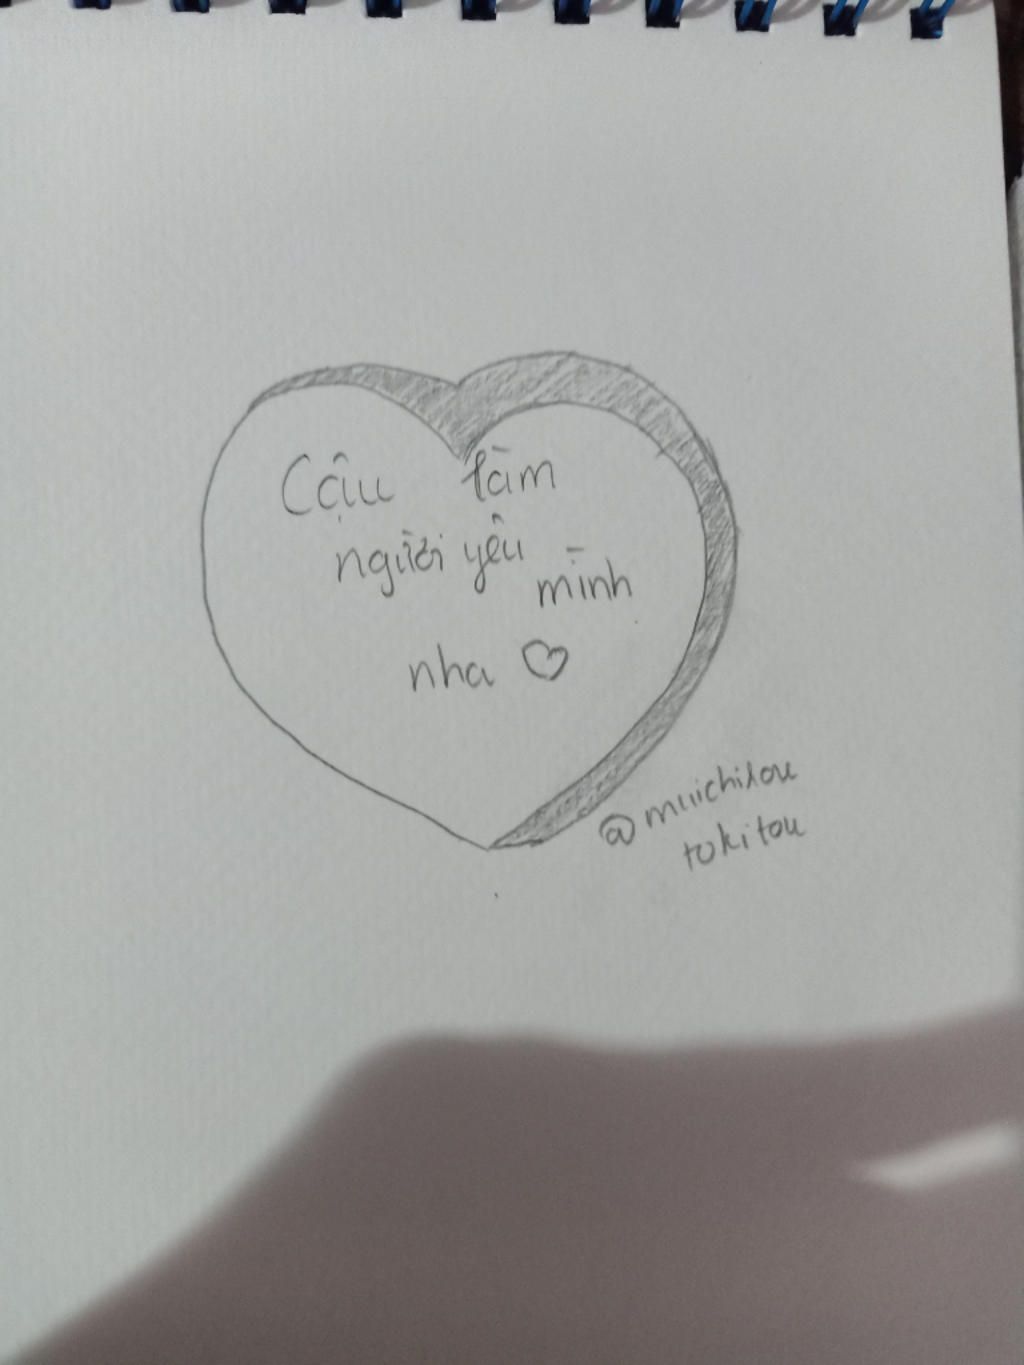 Cậu làm
người yêu mình
nha ♡
@muichirou
tokitou